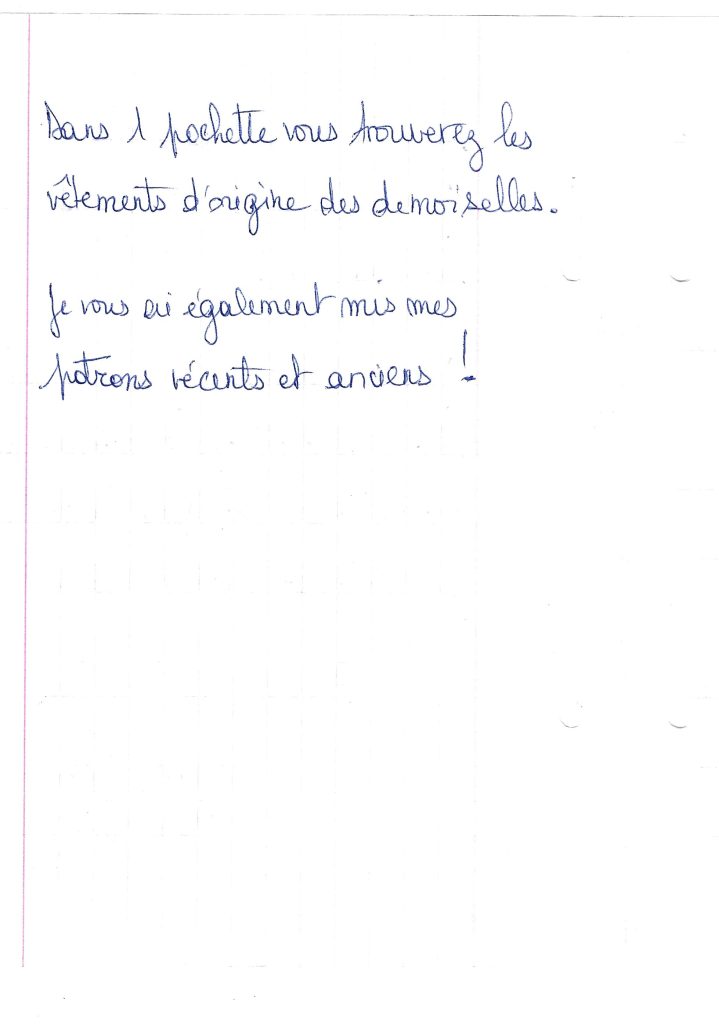 Dans 1 pochette vous trouverez les
vêtements d'origine des demoiselles.
Je vous ai également mis mes
patrons récents et anciens !